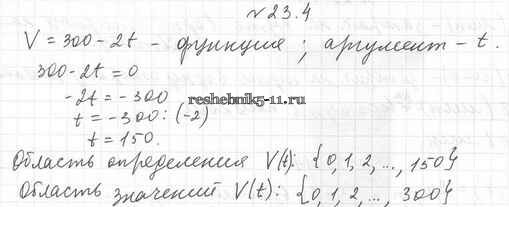 № 23.4
V = 300 - 2t - функция; аргумент - t.
300 - 2t = 0
-2t = -300
reshebnik5-11.ru
t = -300 : (-2)
t = 150.
Область определения V(t): {0, 1, 2, ..., 150}
Область значений V(t): {0, 1, 2, ..., 300}